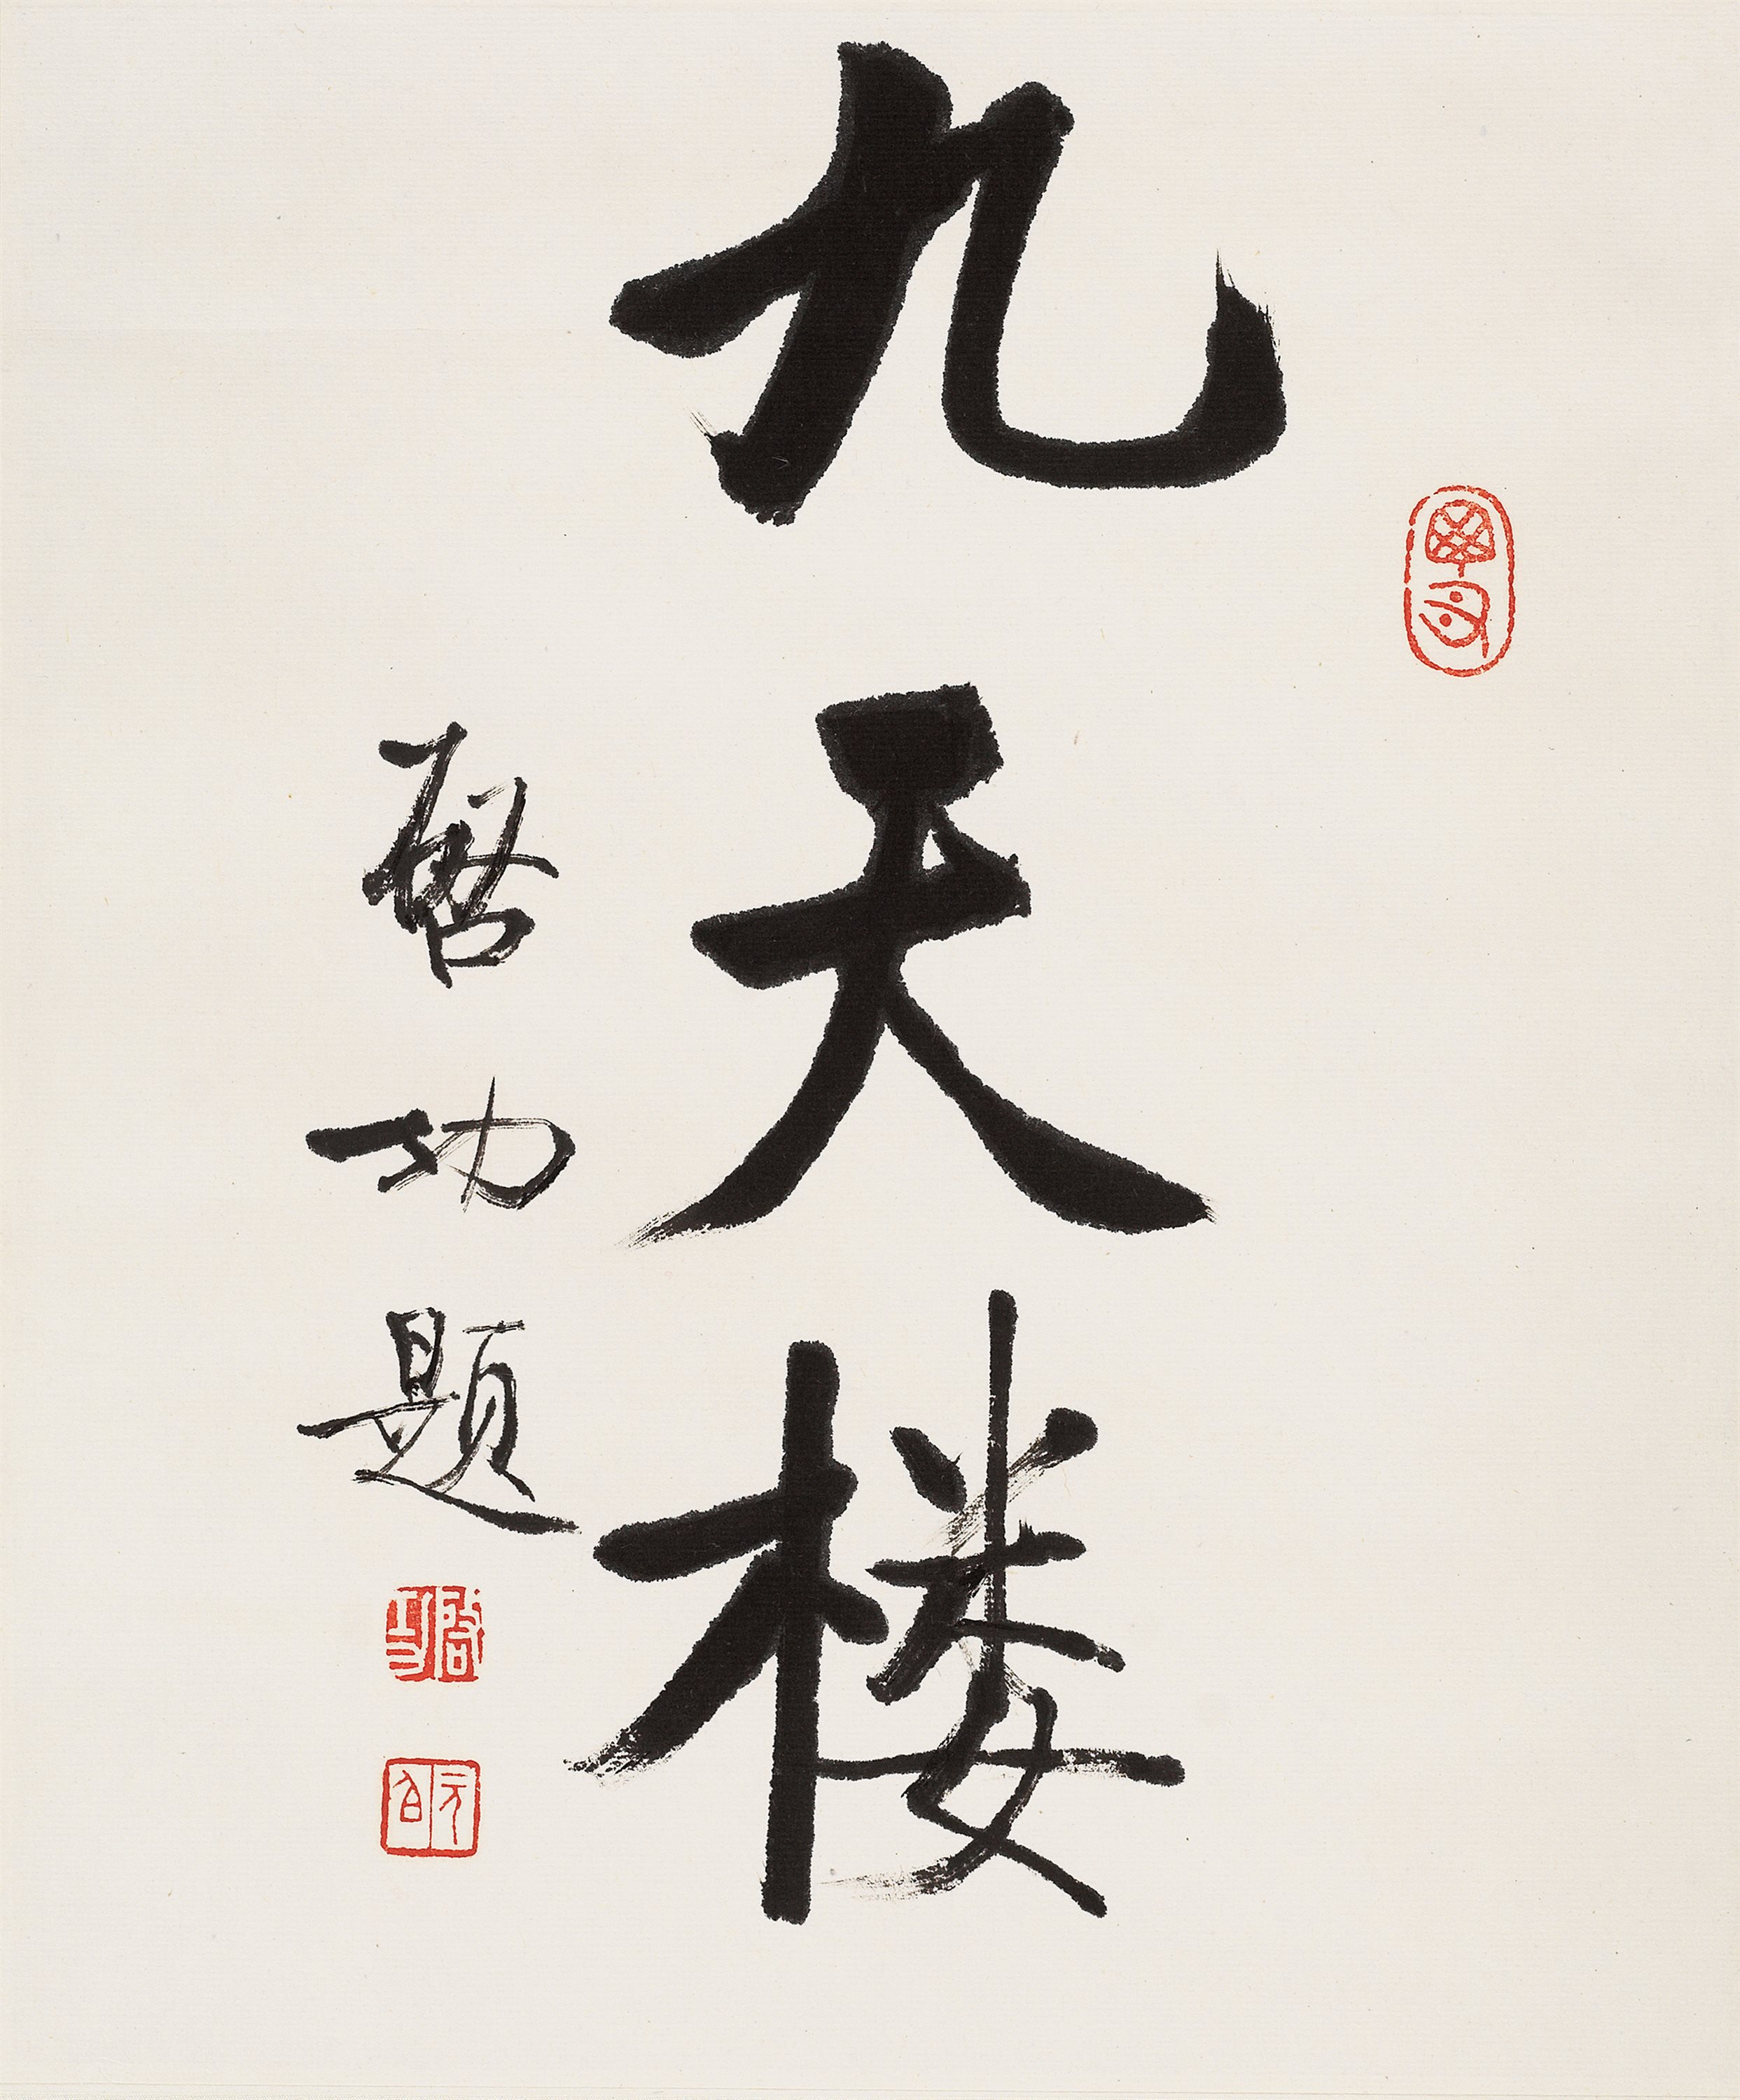 九天楼
启功题
启功
元白